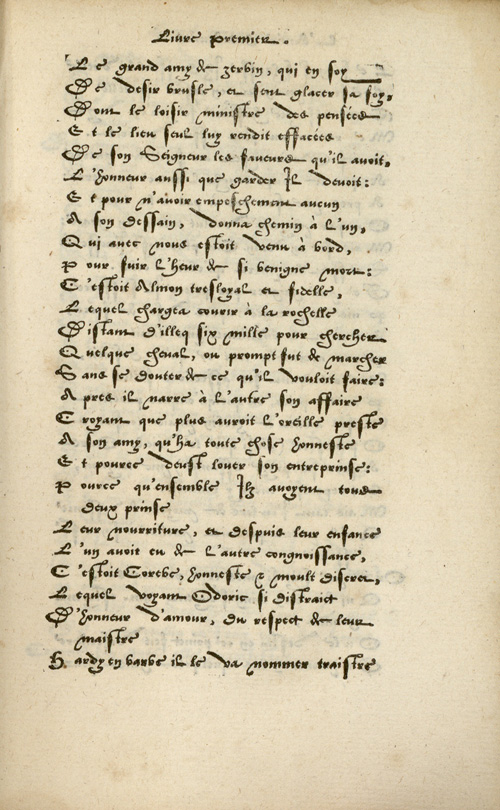 Livre premier.
Le grand amy de zerbin, qui en soy
De desir brusle, et sent glacer sa foy,
Dont le loisir ministre des pensées
Et le lieu seul luy rendit effacées
De son Seigneur les faveurs qu'il avoit,
L'honneur aussi que garder Il devoit:
Et pour n'avoir empeschement aucun
A son dessain, donna chemin à l'un,
Qui avec nous estoit venu à bord,
Pour fuir l'heur de si benigne mort:
C'estoit Almon tresloyal et fidelle,
Lequel chargea courir à la rochelle
Distant d'illeq six mille pour chercher
Quelque cheval, ou prompt fut de marcher
Sans se douter de ce qu'il vouloit faire:
Apres il narre à l'autre son affaire
Croyant que plus auroit l'oreille preste
A son amy, qu'ha toute chose honneste
Et pource deust louer son entreprinse:
Pource qu'ensemble Ilz avoyent tous
deux prinse
Leur nourriture, et despuis leur enfance
L'un avoit eu de l'autre congnoissance,
C'estoit Corebe, honneste & moult discret,
Lequel voyant Odoric si distraict
D'honneur d'amour, du respect de leur
maistre
Hardy en barbe il le va nommer traistre